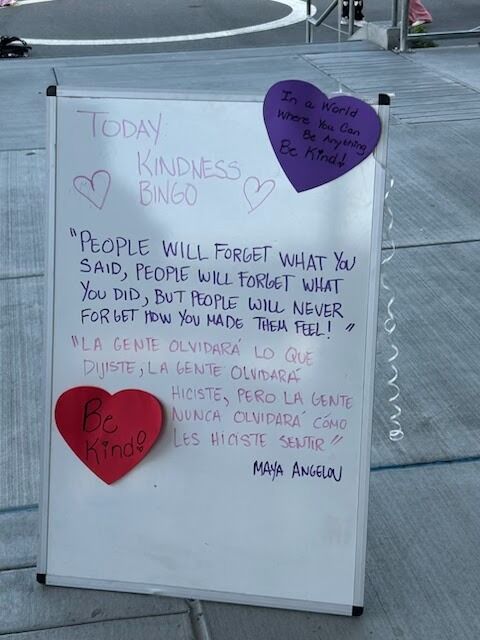 TODAY
KINDNESS
BINGO
In a World
Where You Can
Be Anything
Be Kind!
"PEOPLE WILL FORGET WHAT YOU
SAID, PEOPLE WILL FORGET WHAT
YOU DID, BUT PEOPLE WILL NEVER
FORGET HOW YOU MADE THEM FEEL! "
"LA GENTE OLVIDARÁ LO QUE
DIJISTE, LA GENTE OLVIDARÁ
HICISTE, PERO LA GENTE
NUNCA OLVIDARÁ CÓMO
LES HICISTE SENTIR"
Be
Kind!
MAYA ANGELOU